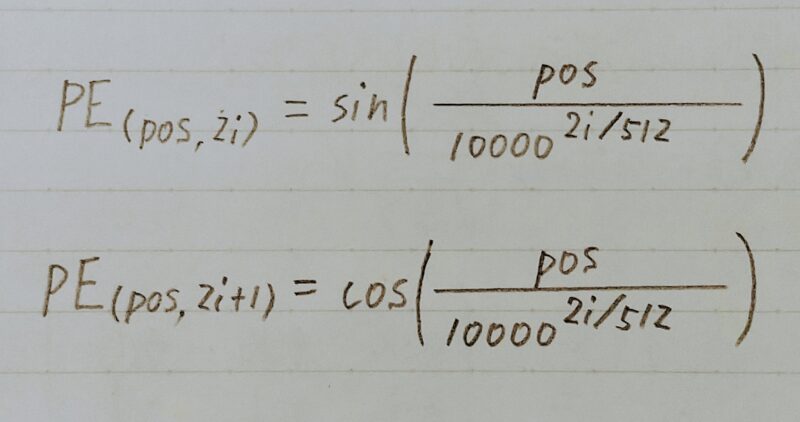 PE_(pos, 2i) = sin( pos / 10000^{2i/512} )
PE_(pos, 2i+1) = cos( pos / 10000^{2i/512} )